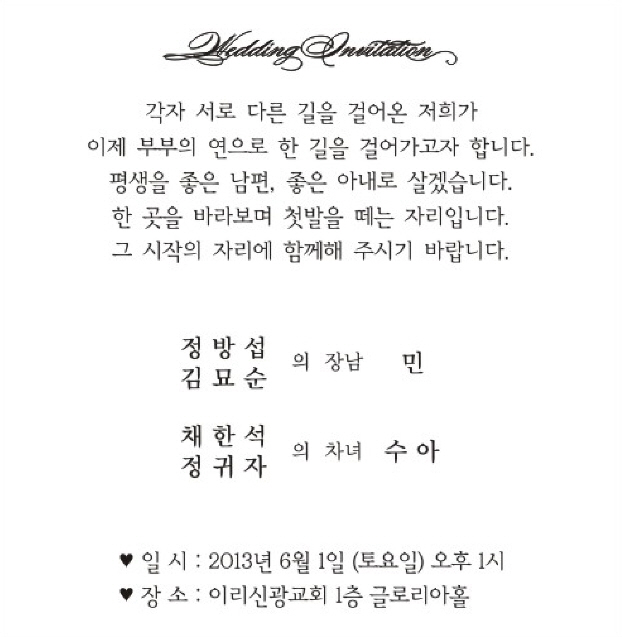 Wedding Invitation
각자 서로 다른 길을 걸어온 저희가
이제 부부의 연으로 한 길을 걸어가고자 합니다.
평생을 좋은 남편, 좋은 아내로 살겠습니다.
한 곳을 바라보며 첫발을 떼는 자리입니다.
그 시작의 자리에 함께해 주시기 바랍니다.
정 방 섭
김 묘 순
의 장남 민
채 한 석
정 귀 자
의 차녀 수 아
♥ 일 시 : 2013년 6월 1일 (토요일) 오후 1시
♥ 장 소 : 이리신광교회 1층 글로리아홀